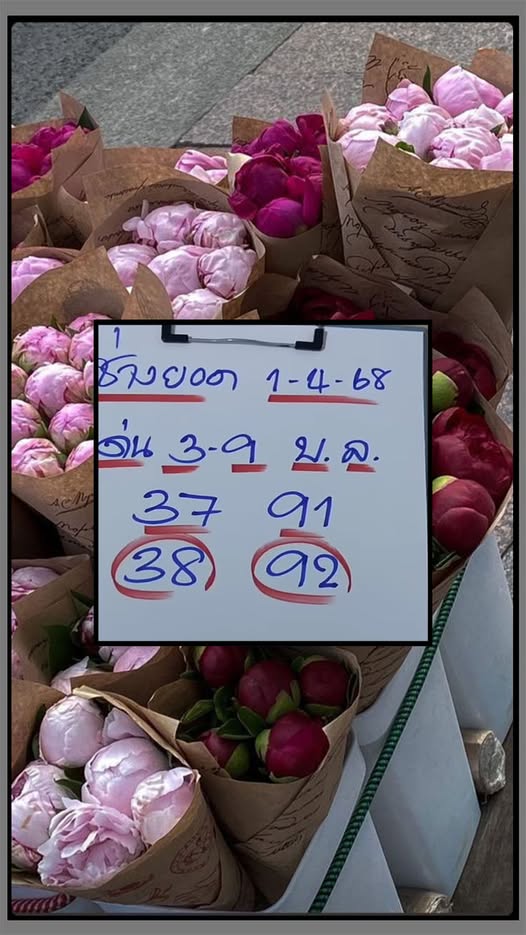 ช่างยอด 1-4-68
เด่น 3-9 บ.ล.
37 91
38 92